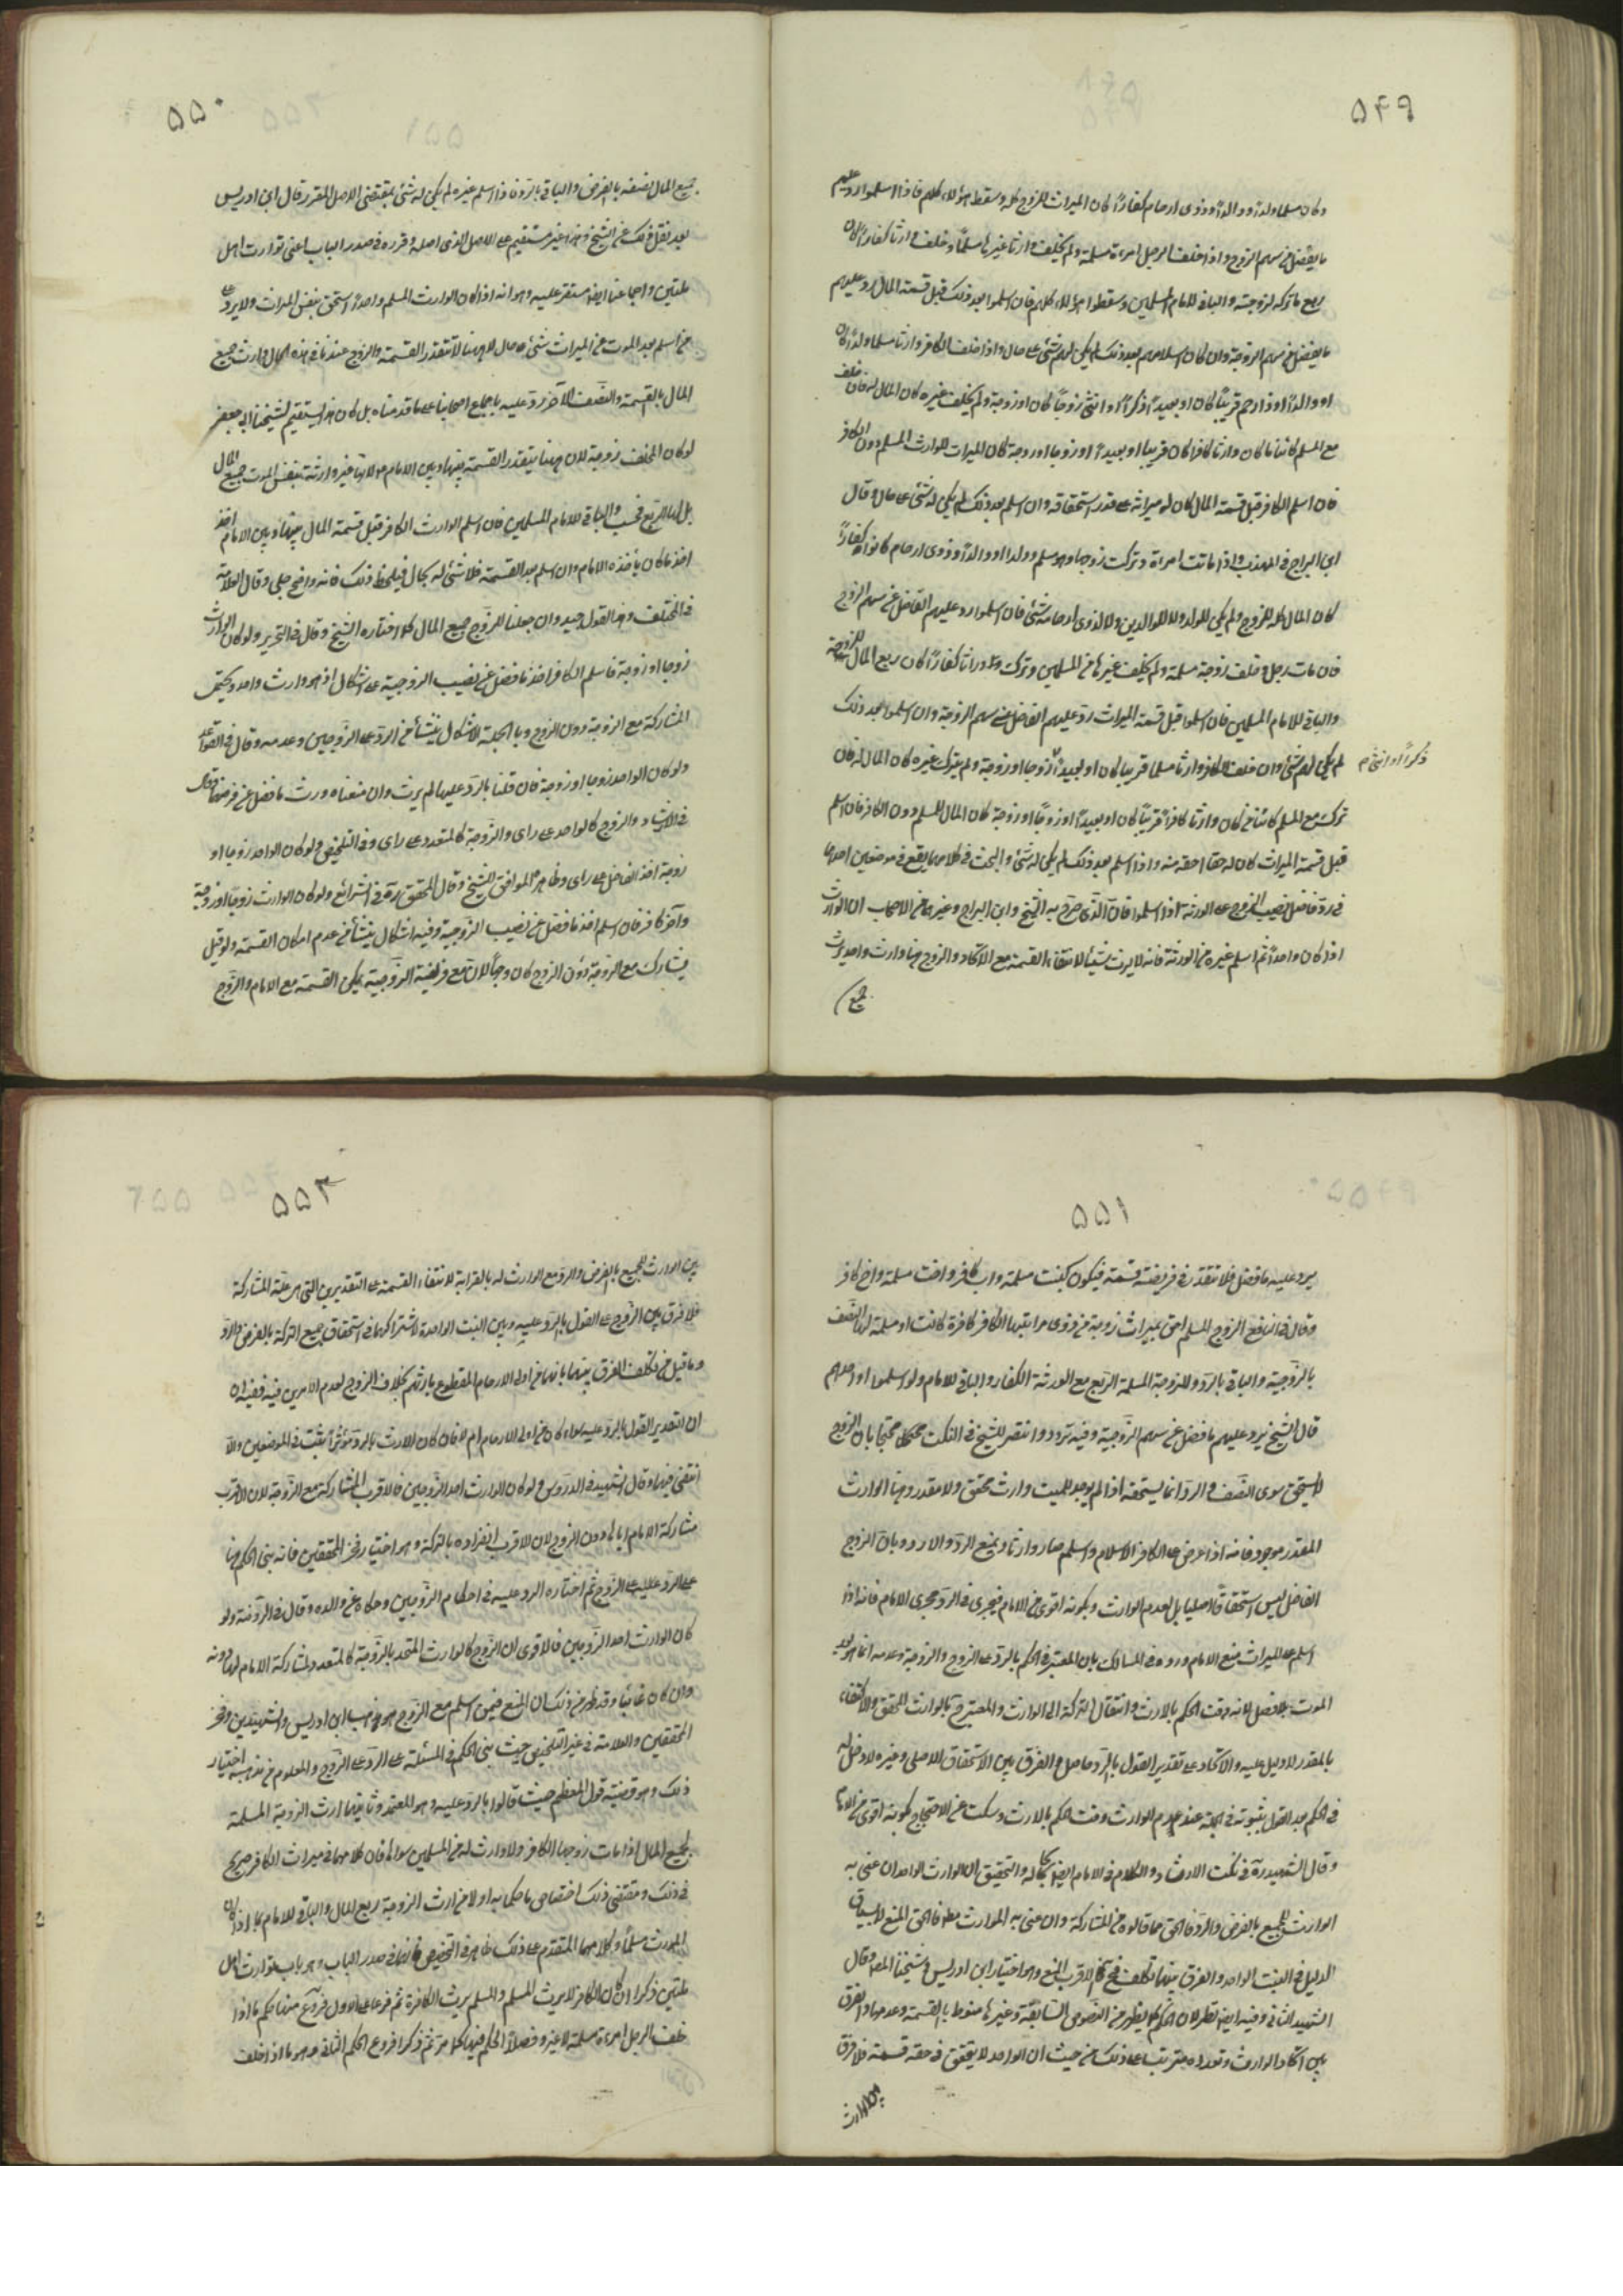 ۵۴۹
وكان مسلما ولدا او والدا او ذوى ارحام كفارا كان الميراث للزوج كله وسقط هؤلاء كلهم فاذا اسلموا رد عليهم
ما يفضل من سهم الزوج واذا خلف الرجل امرءة مسلمة ولم يخلف وارثا غيرها مسلما وخلف وارثا كفارا كان
ربع ما تركه لزوجته والباقى للامام المسلمين وسقطوا هؤلاء كلهم فان اسلموا بعد ذلك قبل قسمة المال رد عليهم
ما يفضل من سهم الزوجة وان كان اسلامهم بعد ذلك لم يكن لهم شئ على حال واذا خلف الكافر وارثا مسلما ولدا كان
او والدا او ذا رحم قريبا كان او بعيدا ذكرا او انثى زوجا كان او زوجة ولم يخلف غيره كان المال له فان خلف
مع المسلم كائنا ما كان وارثا كافرا كان قريبا او بعيدا او زوجا او زوجة كان الميراث للوارث المسلم دون الكافر
فان اسلم الكافر قبل قسمة المال كان له ميراثه على قدر استحقاقه وان اسلم بعد ذلك لم يكن له شئ على حال وقال
ابن البراج فى المهذب واذا ماتت امرأة وتركت زوجها وهو مسلم وولدا او والدا او ذوى ارحام كانوا كفارا
كان المال كله للزوج ولم يكن للولد ولا للوالدين ولا لذوى ارحامه شئ فان اسلموا رد عليهم الفاضل عن سهم الزوج
فان مات رجل وخلف زوجة مسلمة ولم يخلف غيرها من المسلمين وترك وراثا كفارا كان ربع المال للزوجة
والباقى للامام المسلمين فان اسلموا قبل قسمة الميراث رد عليهم الفاضل عن سهم الزوجة وان اسلموا بعد ذلك
لم يكن لهم شئ وان خلف الكافر وارثا مسلما قريبا كان او بعيدا زوجا او زوجة ولم يترك غيره كان المال له فان
ذكرا او انثى م
ترك مع المسلم كائنا من كان وارثا كافرا قريبا كان او بعيدا او زوجا او زوجة كان المال للمسلم دون الكافر فان اسلم
قبل قسمة الميراث كان له حقا احقه منه واذا اسلم بعد ذلك لم يكن له شئ والبحث فى كلامهما يقع فى موضعين احدهما
فى رد فاضل نصيب الزوج على الورثة اذا اسلموا فان الذى صرح به الشيخ وابن البراج وغيرهما من الاصحاب ان الوارث
اذا كان واحدا ثم اسلم غيره من الورثة فانه لا يرث شيئا لانتفاء القسمة مع الاتحاد والزوج هنا وارث واحد يرث
جميع
۵۵۰
جميع المال نصفه بالفرض والباقى بالرد فاذا اسلم غيره لم يكن له شئ بمقتضى الاصل المقرر قال ابن ادريس
بعد نقل ذلك عن الشيخ وهذا غير مستقيم على الاصل الذى اصله وقرره فى صدر الباب اعنى توارث اهل
ملتين واجماعنا ايضا مستقر عليه وهو انه اذا كان الوارث المسلم واحدا استحق بنفس الموت الميراث ولا يرد على
من اسلم بعد الموت من الميراث شئ على حال لان ههنا لا تتقدر القسمة والزوج عندنا فى هذه الحال وارث جميع
المال بالقسمة والنصف الآخر رد عليه باجماع اصحابنا على ما قدمناه بل كان هذا يستقيم لشيخنا ابى جعفر
لو كان المخلف زوجة لان ههنا يتقدر القسمة بينها وبين الامام ولانها غير وارثة بنفس الموت جميع المال
بل لها الربع فحسب والباقى للامام المسلمين فان اسلم الوارث الكافر قبل قسمة المال بينها وبين الامام اخذ
اخذ ما كان ياخذه الامام وان اسلم بعد القسمة فلا شئ له بحال فيلحظ ذلك فانه واضح جلى وقال العلامة
فى المختلف وهذا القول جيد وان جعلنا للزوج جميع المال كما اختاره الشيخ وقال فى التحرير ولو كان الوارث
زوجا او زوجة فاسلم الكافر اخذ ما فضل عن نصيب الزوجية على اشكال اذ هو وارث واحد ويحتمل
المشاركة مع الزوجة دون الزوج وبالجملة الاشكال ينشأ من الرد على الزوجين وعدمه وقال فى القواعد
ولو كان الواحد زوجا او زوجة فان قلنا بالرد عليهما لم يرث وان منعناه ورث ما فضل عن فرضهما وقال
فى الارشاد والزوج كالواحد على راى والزوجة كالمتعدد على راى وفى التلخيص ولو كان الواحد زوجا او
زوجة اخذ الفاضل على راى وظاهره الموافق للشيخ وقال المحقق ره فى الشرائع ولو كان الوارث زوجا او زوجة
وآخر كافر فان اسلم اخذ ما فضل عن نصيب الزوجية وفيه اشكال ينشأ من عدم امكان القسمة ولو قيل
يشارك مع الزوجة دون الزوج كان وجها لان مع فريضة الزوجية يمكن القسمة مع الامام والزوج
۵۵۱
يرد عليه ما فضل فلا تتقدر فى فريضته قسمة فيكون كبنت مسلمة واب كافر واخت مسلمة واخ كافر
وقال فى النافع الزوج المسلم احق بميراث زوجته من ذوى قرابتها الكافر كافرة كانت او مسلمة لها النصف
بالزوجية والباقى بالرد وللزوجة المسلمة الربع مع الورثة الكفار والباقى للامام ولو اسلموا او احدهم
قال الشيخ يرد عليهم ما فضل عن سهم الزوجية وفيه تردد وانتصر للشيخ فى النكت محتجا بان الزوج
لا يستحق سوى النصف والرد انما يستحقه اذا لم يوجد للميت وارث محقق ولا مقدر وهنا الوارث
المقدر موجود فانه اذا عرض على الكافر الاسلام واسلم صار وارثا ويمنع الرد والا رد وبان الزوج
الفاضل ليس استحقاقا اصليا بل لعدم الوارث وبكونه اقوى من الامام فيجرى فى الرد مجرى الامام فانه اذا
اسلم على الميراث منع الامام ورده فى المسالك بان المعتبر فى الحكم بالرد على الزوج والزوجة وعدمه انما هو بعد
الموت بلا فصل لانه وقت الحكم بالارث وانتقال التركة الى الوارث والمعتبر ح بالوارث المحقق والاكتفاء
بالمقدر لا دليل عليه والاتحاد على تقدير القول بالرد حاصل والفرق بين الاستحقاق الاصلى وغيره لا دخل له
فى الحكم بعد القول بثبوته فى الجملة عند عدم الوارث وقت الحكم بالارث وسكت عن الاحتجاج بكونه اقوى من الامام
وقال الشهيد ره فى نكت الارشاد والكلام فى الامام ايضا كما له والتحقيق ان الوارث الواحد ان عنى به
الوارث للجميع بالفرض والرد فالحق ما قالوه من المشاركة وان عنى به الوارث مطلقا فالحق المنع لانسياق
الدليل فى البنت الواحد والفرق بينهما تكلف فمن ثم الاقرب المنع وهو اختيار ابن ادريس وشيخنا المصنف وقال
الشهيد الثانى وفيه ايضا نظر لان الحكم كما يظهر من النصوص السابقة وغيرها منوط بالقسمة وعدمها والفرق
بين اتحاد الوارث وتعدده مترتب على ذلك من حيث ان الواحد لا يتحقق فى حقه قسمة فلا فرق
بين الوارث
۵۵۲
بين الوارث للجميع بالفرض والرد مع الوارث له بالقرابة لانتفاء القسمة على التقديرين التى هى علة المشاركة
فلا فرق بين الزوج على القول بالرد عليه وبين البنت الواحدة لاشتراكهما فى استحقاق جميع التركة بالفرض والرد
وما قيل من تكلف الفرق بينهما بانها من اولى الارحام المقطوع بارثهم بخلاف الزوج لعدم الامرين فيه ففيه ان
ان التقدير القول بالرد عليه سواء كان من اولى الارحام ام لا فان كان الارث بالرد مؤثرا ثبت فى الموضعين والا
انتفى فيهما وقال الشهيد فى الدروس ولو كان الوارث احد الزوجين فالاقرب المشاركة مع الزوجة لان الاقرب
مشاركة الامام اياها دون الزوج لان الاقرب انفراده بالتركة وهو اختيار فخر المحققين فانه بنى الحكم هنا
على الرد عليه على الزوج ثم اختاره الرد عليه فى احكام الزوجين وحكاه عن والده وقال فى الروضة ولو
كان الوارث احد الزوجين فالاقوى ان الزوج كالوارث المتحد بالزوجة كالمتعدد لمشاركة الامام لها دونه
وان كان غائبا وقد ظهر من ذلك ان المنع فيمن اسلم مع الزوج هو مذهب ابن ادريس والشهيدين وفخر
المحققين والعلامة فى غير التلخيص حيث بنى الحكم فى المسئلة على الرد على الزوج والمعلوم من مذهبه اختيار
ذلك وهو قضية قول المعظم حيث قالوا بالرد عليه وهو المعتمد وثانيهما ارث الزوجة المسلمة
لجميع المال اذا مات زوجها الكافر ولا وارث له من المسلمين سواها فان كلامهما فى ميراث الكافر صريح
فى ذلك ومقتضى ذلك اختصاص ما حكما به اولا من ارث الزوجة ربع المال والباقى للامام بما اذا كان
المورث مسلما وكلامهما المتقدم على ذلك ظاهر فى التخصيص فانهما فى صدر الباب وهو باب توارث اهل
ملتين ذكرا ان الكافر لا يرث المسلم والمسلم يرث الكافر ثم فرعا على الاول فروع منها حكم ما اذا
خلف الرجل امرءة مسلمة لا غير وفصلا الحكم فيها كما مر ثم ذكرا فروع الحكم الثانى وهو ما اذا خلف